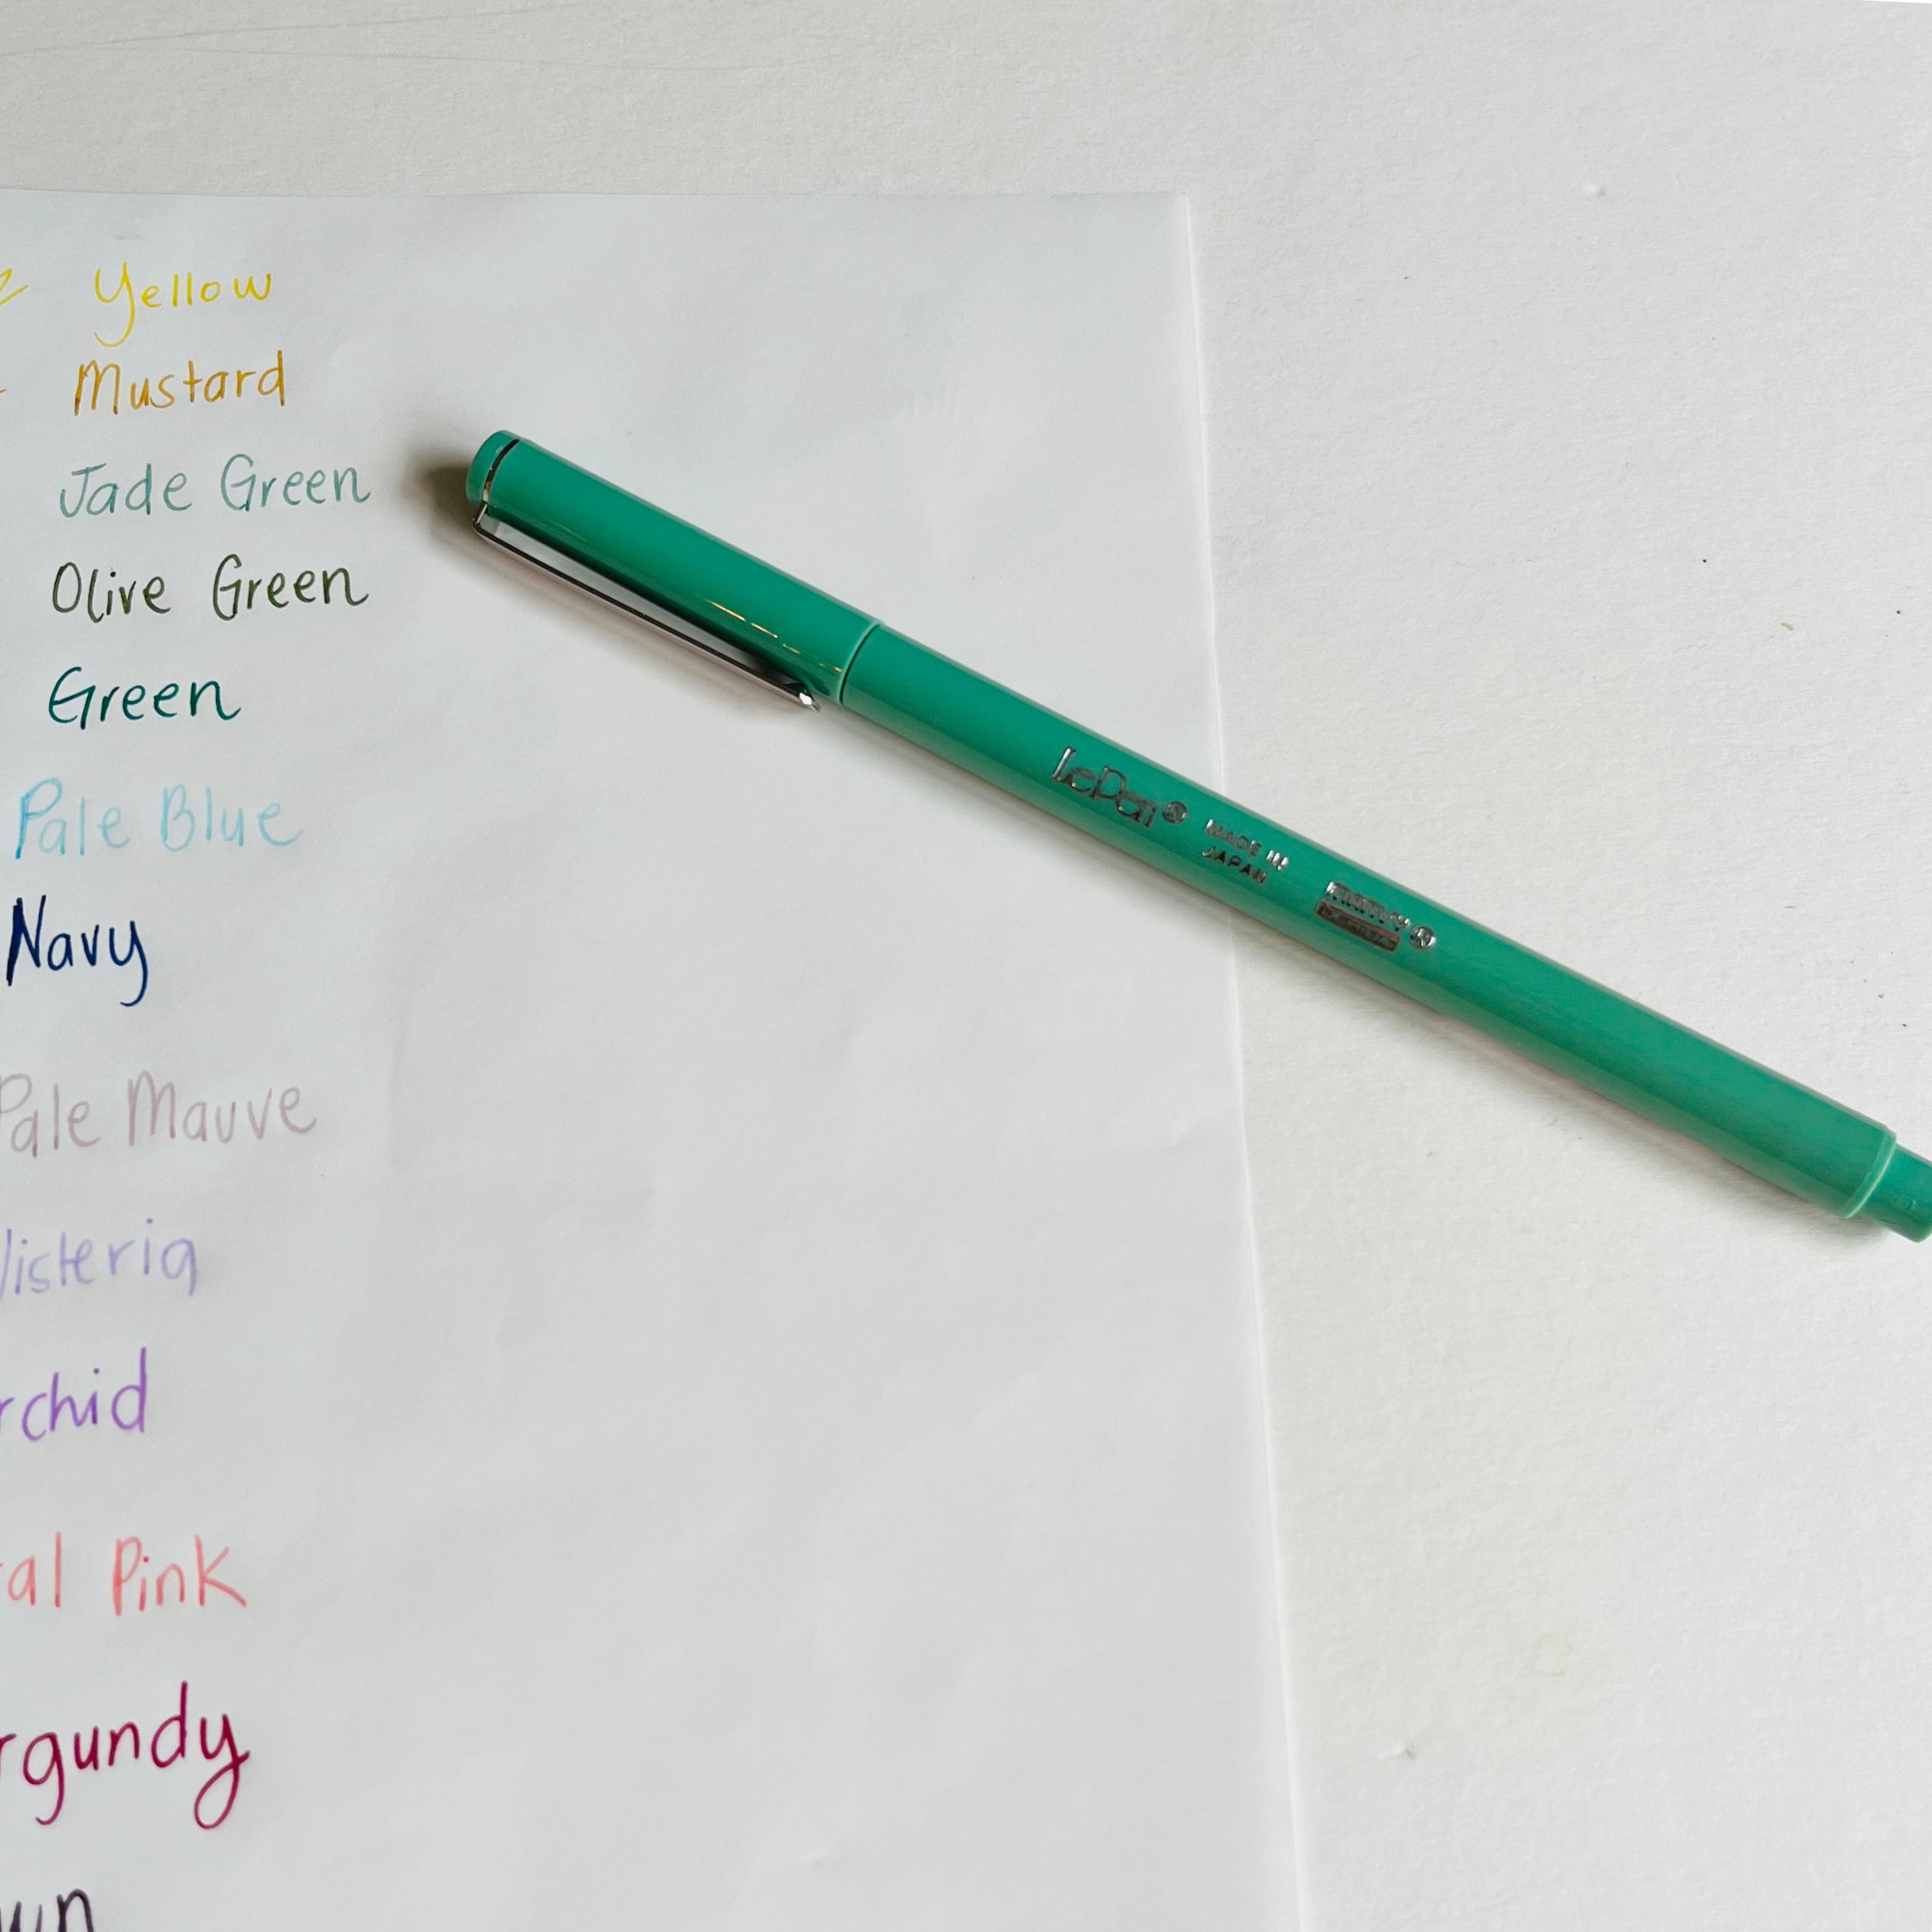 Yellow
Mustard
Jade Green
Olive Green
Green
Pale Blue
Navy
Pale Mauve
isteria
rchid
al Pink
rgundy
wn
LePen®
MADE IN
JAPAN
MARVY®